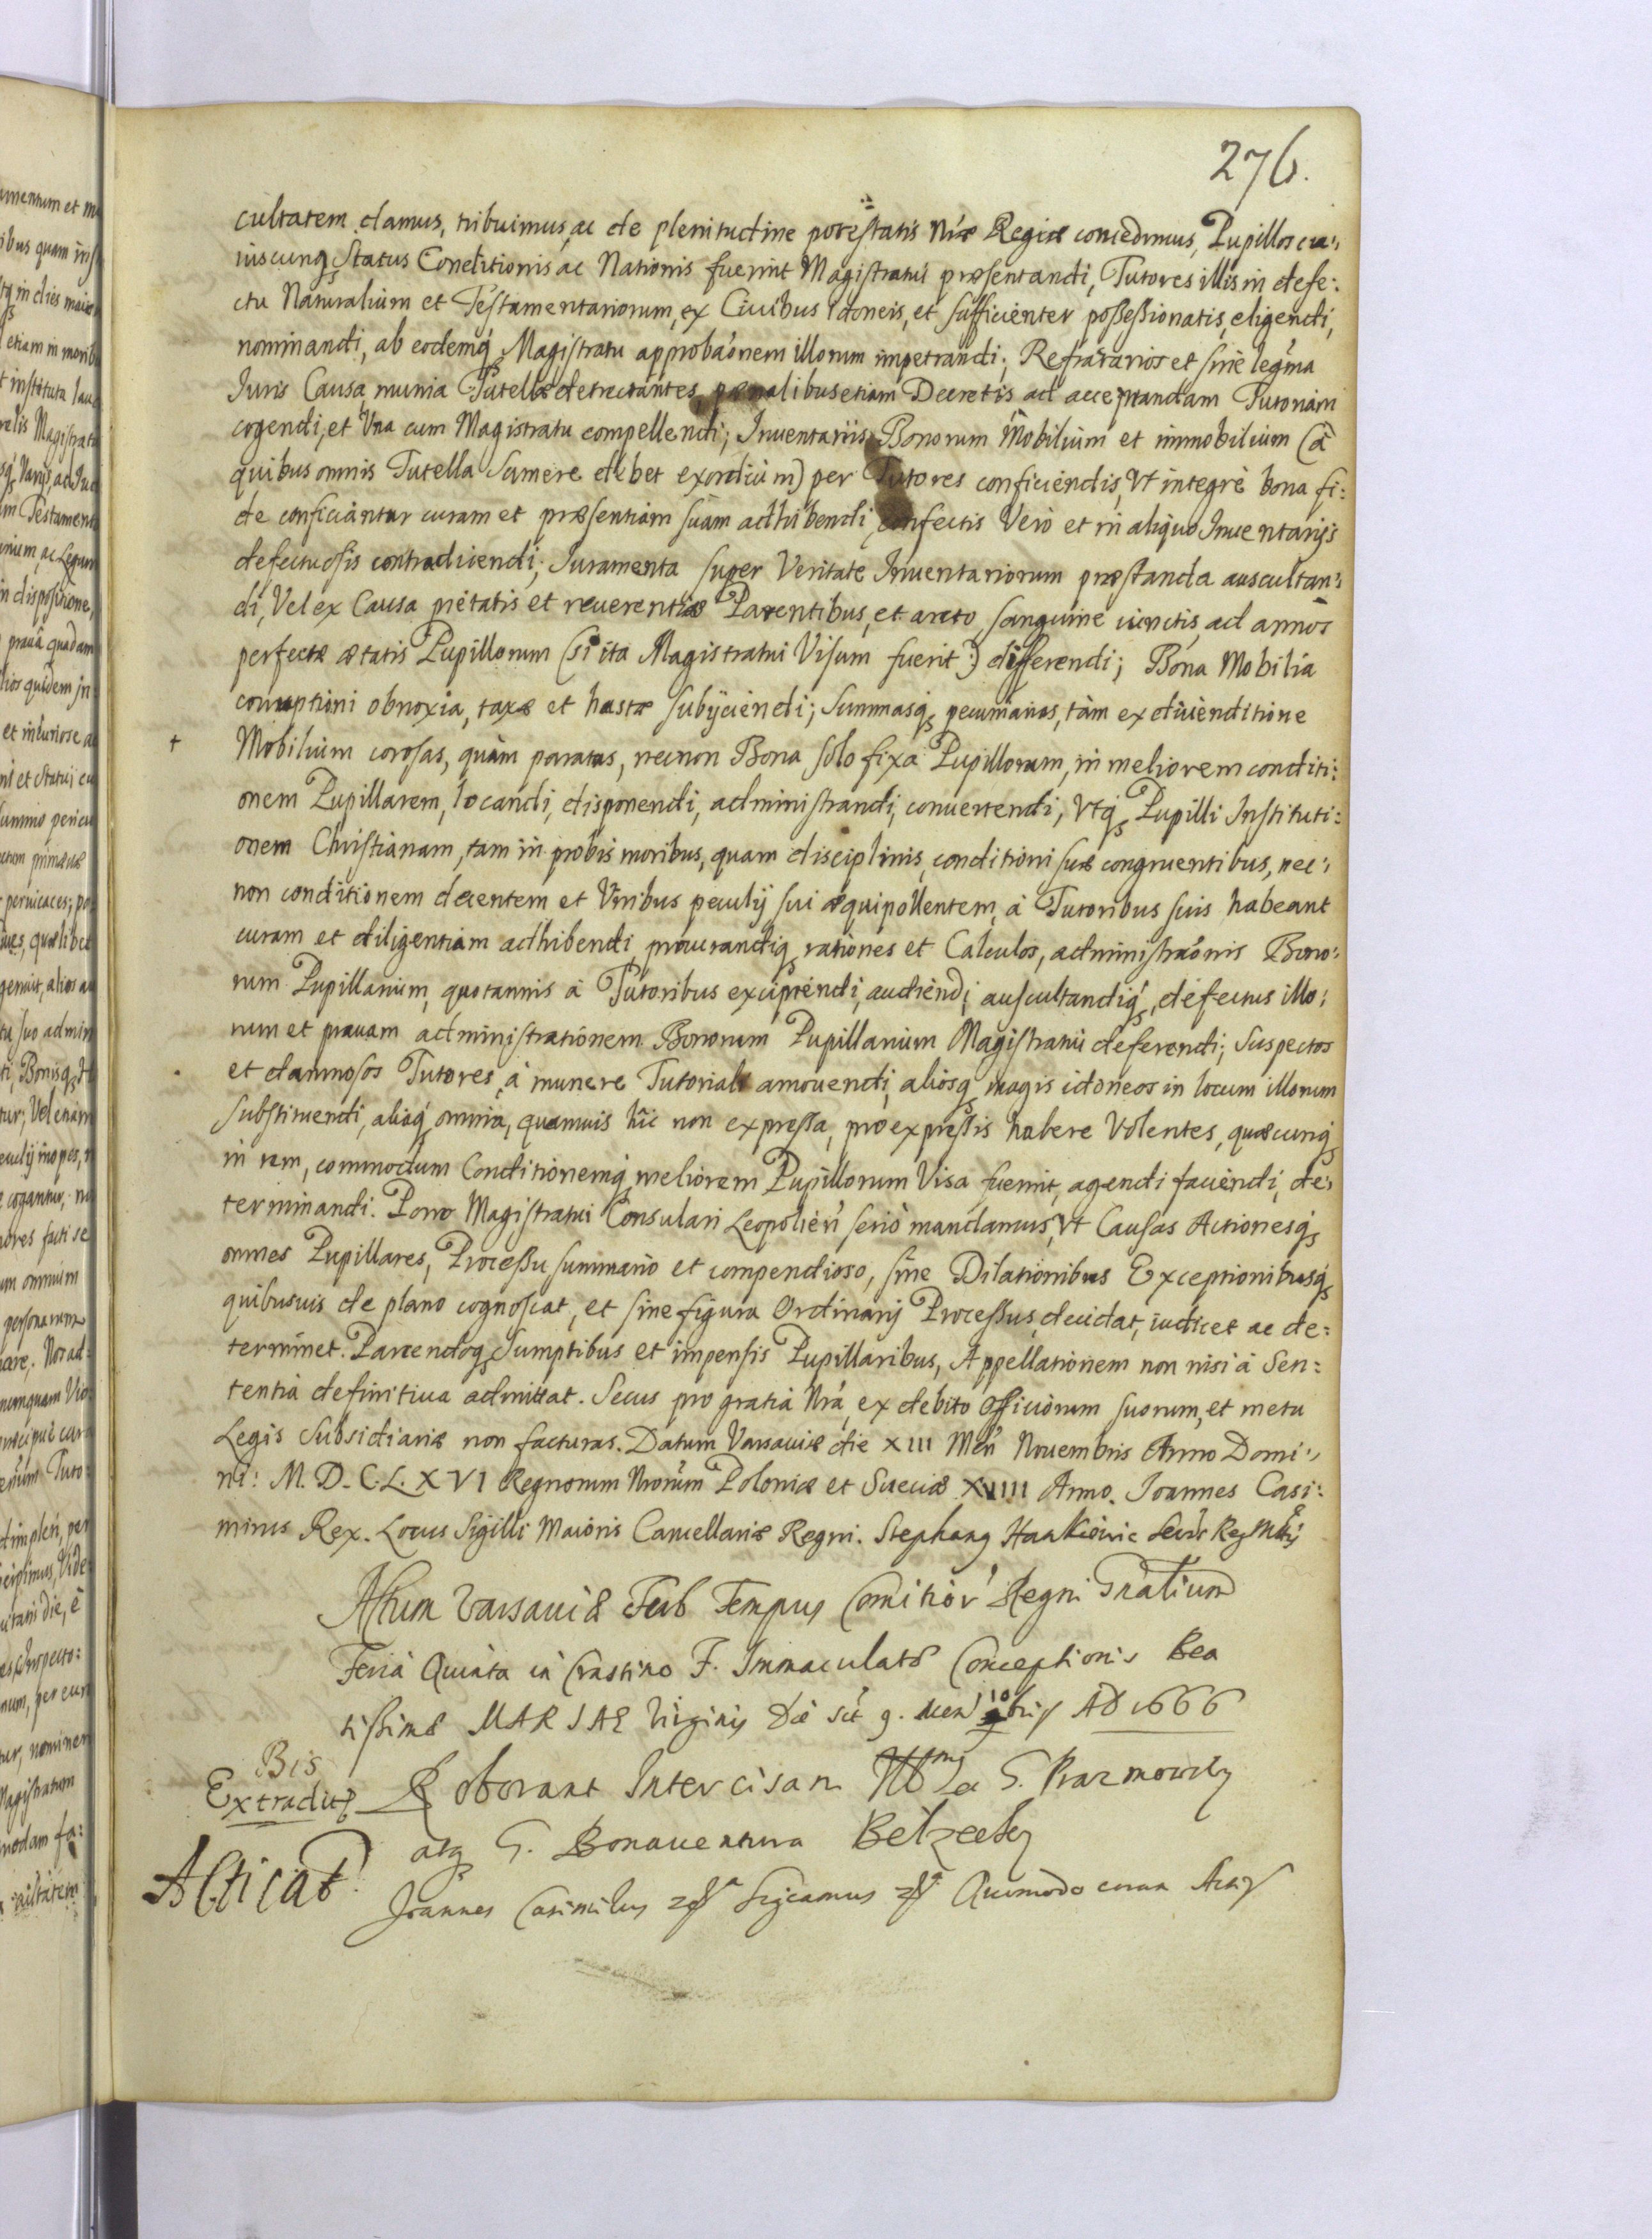 276.
cultatem damus, tribuimus, ac de plenitudine potestatis Nræ Regiæ concedimus, Pupillos cu:
iuscunq, Status Conditionis ac Nationis fuerint Magistratui præsentandi, Tutores illis in defe:
ctu Naturalium et Testamentariorum, ex Ciuibus Idoneis, et sufficienter possessionatis, eligendi,
nominandi, ab eodemq, Magistratu approbaónem illorum impetrandi; Refractarios et sine legma
Iuris Causa, munia Tutellæ detrectantes, pænalibus etiam Decretis ad acceptandam Tutoriam
cogendi, et Vna cum Magistratu compellendi; Inuentarijs Bonorum Mobilium et immobilium (à
quibus omnis Tutella sumere debet exordium) per Tutores conficiendis, Vt integrè bona fi:
de conficiantur curam et præsentiam suam adhibendi, confectis Verò et in aliquo Inuentarijs
defectuosis contradicendi; Iuramenta super Veritate Inuentariorum præstanda auscultan:
di, Vel ex Causa pietatis et reuerentiæ Parentibus, et arcto sanguine iunctis, ad annos
perfectæ ætatis Pupillorum (si ita Magistratui Visum fuerit:) differendi; Bona Mobilia
corruptioni obnoxia, taxæ et hastæ subijciendi; Summasq, pecuniarias, tàm ex diuenditione
+ Mobilium corosas, quàm paratas, necnon Bona solo fixa Pupillorum, in meliorem conditi:
onem Pupillarem, locandi, disponendi, administrandi, conuertendi, Vtq, Pupilli Instituti:
onem Christianam, tam in probis moribus, quam disciplinis, conditioni suæ congruentibus, nec:
non conditionem decentem et Viribus peculij sui æquipollentem, à Tutoribus suis habeant
curam et diligentiam adhibendi, procurandiq, rationes et Calculos, administraónis Bono:
rum Pupillarium, quotannis à Tutoribus excipiendi, audiendi, auscultandiq, defectus illo:
rum et prauam administrationem Bonorum Pupillarium Magistratui deferendi; Suspectos
et damnosos Tutores, à munere Tutoriali amouendi, aliosq, magis idoneos in locum illorum
substituendi, aliaq, omnia, quamuis hîc non expressa, pro expressis habere Volentes, quæcunq,
in rem, commodum Conditionemq, meliorem Pupillorum Visa fuerint, agendi, faciendi, de:
terminandi. Porro Magistratui Consulari Leopolien seriò mandamus, Vt Causas Actionesq,
omnes Pupillares, Processu summario et compendioso, sine Dilationibus Exceptionibusq,
quibusuis de plano cognoscat, et sine figura Ordinarij Processus, decidat, iudicet ac de:
terminet. Parcendoq, Sumptibus et impensis Pupillaribus, Appellationem non nisi à Sen:
tentia definitiua admittat. Secus pro gratia Nrá, ex debito Officiorum suorum, et metu
Legis Subsidiariæ non facturas. Datum Varsauiæ die XIII Men Nouembris Anno Domi:
ni: M.D.C.L.XVI Regnorum Nrorum Poloniæ et Sueciæ XVIIII Anno. Ioannes Casi:
mirus Rex. Locus Sigilli Maioris Cancellariæ Regni. Stephang Hankiewic Secrs Reg Mttis
Actum Varsauiæ Sub Tempus Comitior Regni Gralium
Feria Quinta in Crastino F. Immaculatæ Conceptionis Bea
tissimæ MARIAE Virginis Die sct 9. Men 10bris AD 1666
Bis
Extradit
Roborant Intercisam G. Prazmowsky
atq G. Bonauentura Belzecky
Acticat
Joannes Casimirus Significamus Quomodo coram Actis